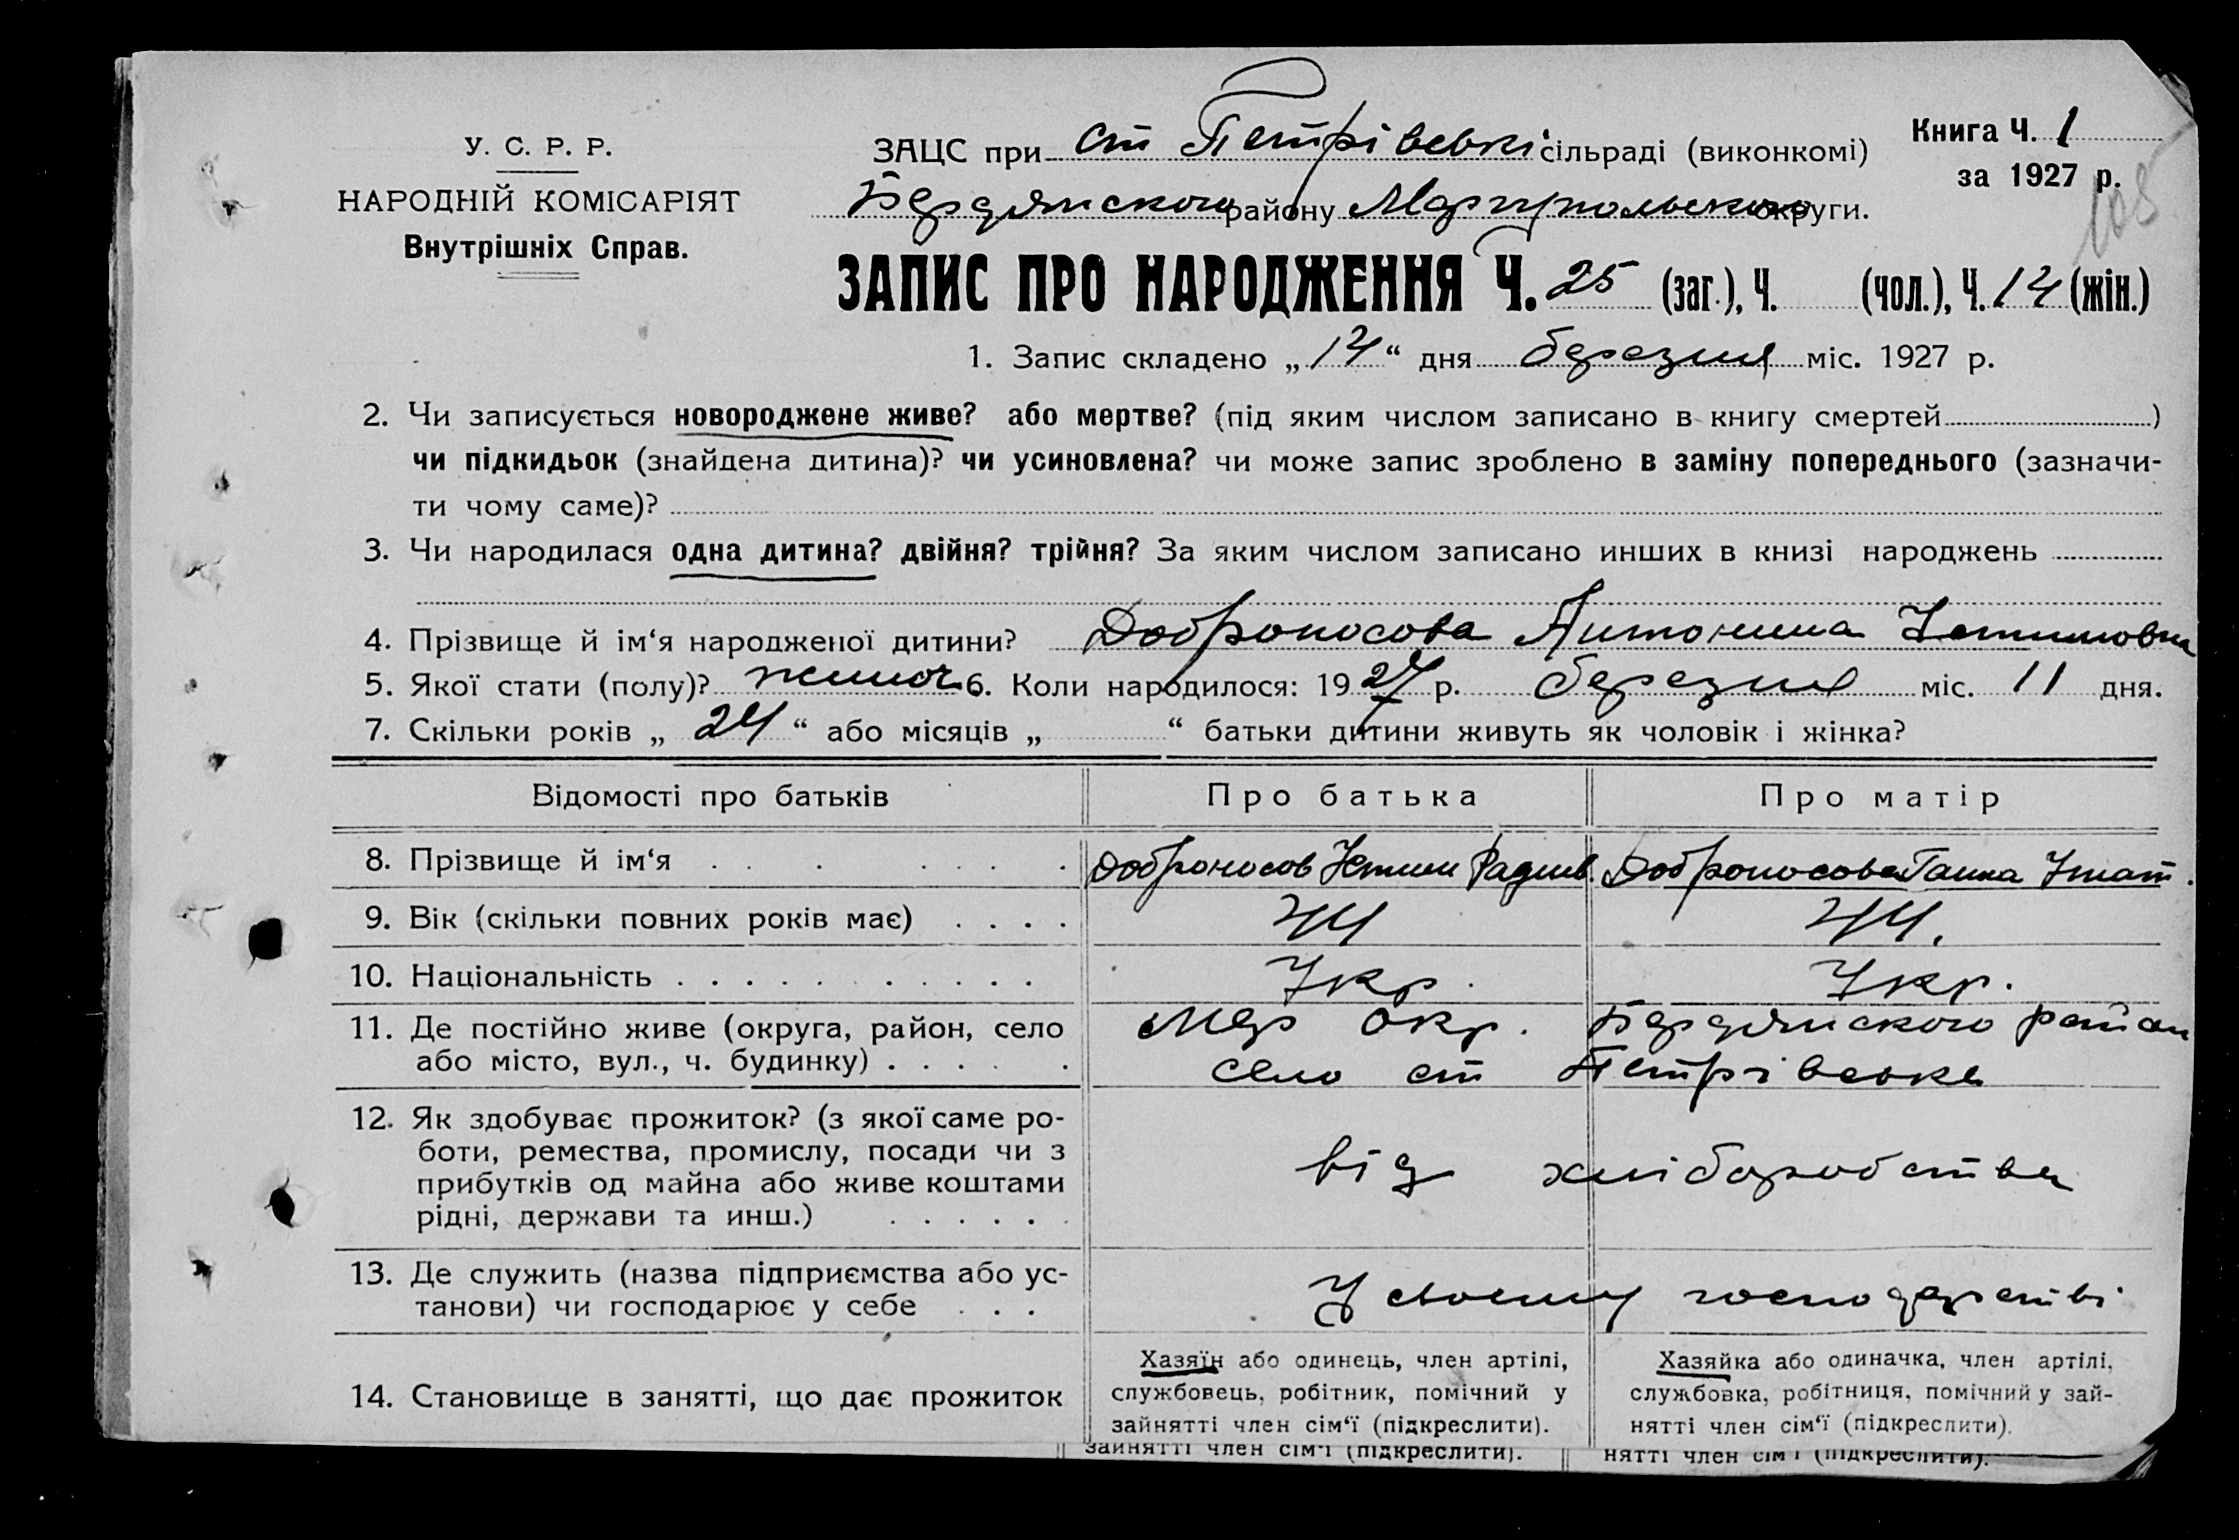 У. С. Р. Р.
НАРОДНІЙ КОМІСАРІЯТ
Внутрішніх Справ.
ЗАЦС при ст Петрівські сільраді (виконкомі)
Бердянського району Маріупольської округи.
Книга Ч. 1
за 1927 р.
108
ЗАПИС ПРО НАРОДЖЕННЯ Ч. 25 (заг.), Ч. (чол.), Ч. 14 (жін.)
1. Запис складено „14“ дня березня міс. 1927 р.
2. Чи записується новороджене живе? або мертве? (під яким числом записано в книгу смертей )
чи підкидьок (знайдена дитина)? чи усиновлена? чи може запис зроблено в заміну попереднього (зазначи-
ти чому саме)?
3. Чи народилася одна дитина? двійня? трійня? За яким числом записано инших в книзі народжень
4. Прізвище й ім‘я народженої дитини? Доброносова Антонина Устимовна
5. Якої стати (полу)? жиноч. 6. Коли народилося: 1927 р. березня міс. 11 дня.
7. Скільки років „ 24 “ або місяців „ “ батьки дитини живуть як чоловік і жінка?
Відомості про батьків Про батька Про матір
8. Прізвище й ім‘я Доброносов Устим Доброносова Ганна Гнат.
9. Вік (скільки повних років має) 44 44.
10. Національність Укр. Укр.
11. Де постійно живе (округа, район, село Мар окр. Бердянського район
або місто, вул., ч. будинку) село ст Петрівська
12. Як здобуває прожиток? (з якої саме ро-
боти, ремества, промислу, посади чи з
прибутків од майна або живе коштами
рідні, держави та инш.) від хліборобства
13. Де служить (назва підприємства або ус-
танови) чи господарює у себе У своєму господарстві
14. Становище в занятті, що дає прожиток
Хазяїн або одинець, член артілі,
службовець, робітник, помічний у
зайнятті член сім‘ї (підкреслити).
Хазяйка або одиначка, член артілі,
службовка, робітниця, помічний у зай-
нятті член сім‘ї (підкреслити).
зайнятті член сім‘ї (підкреслити).
нятті член сім‘ї (підкреслити).